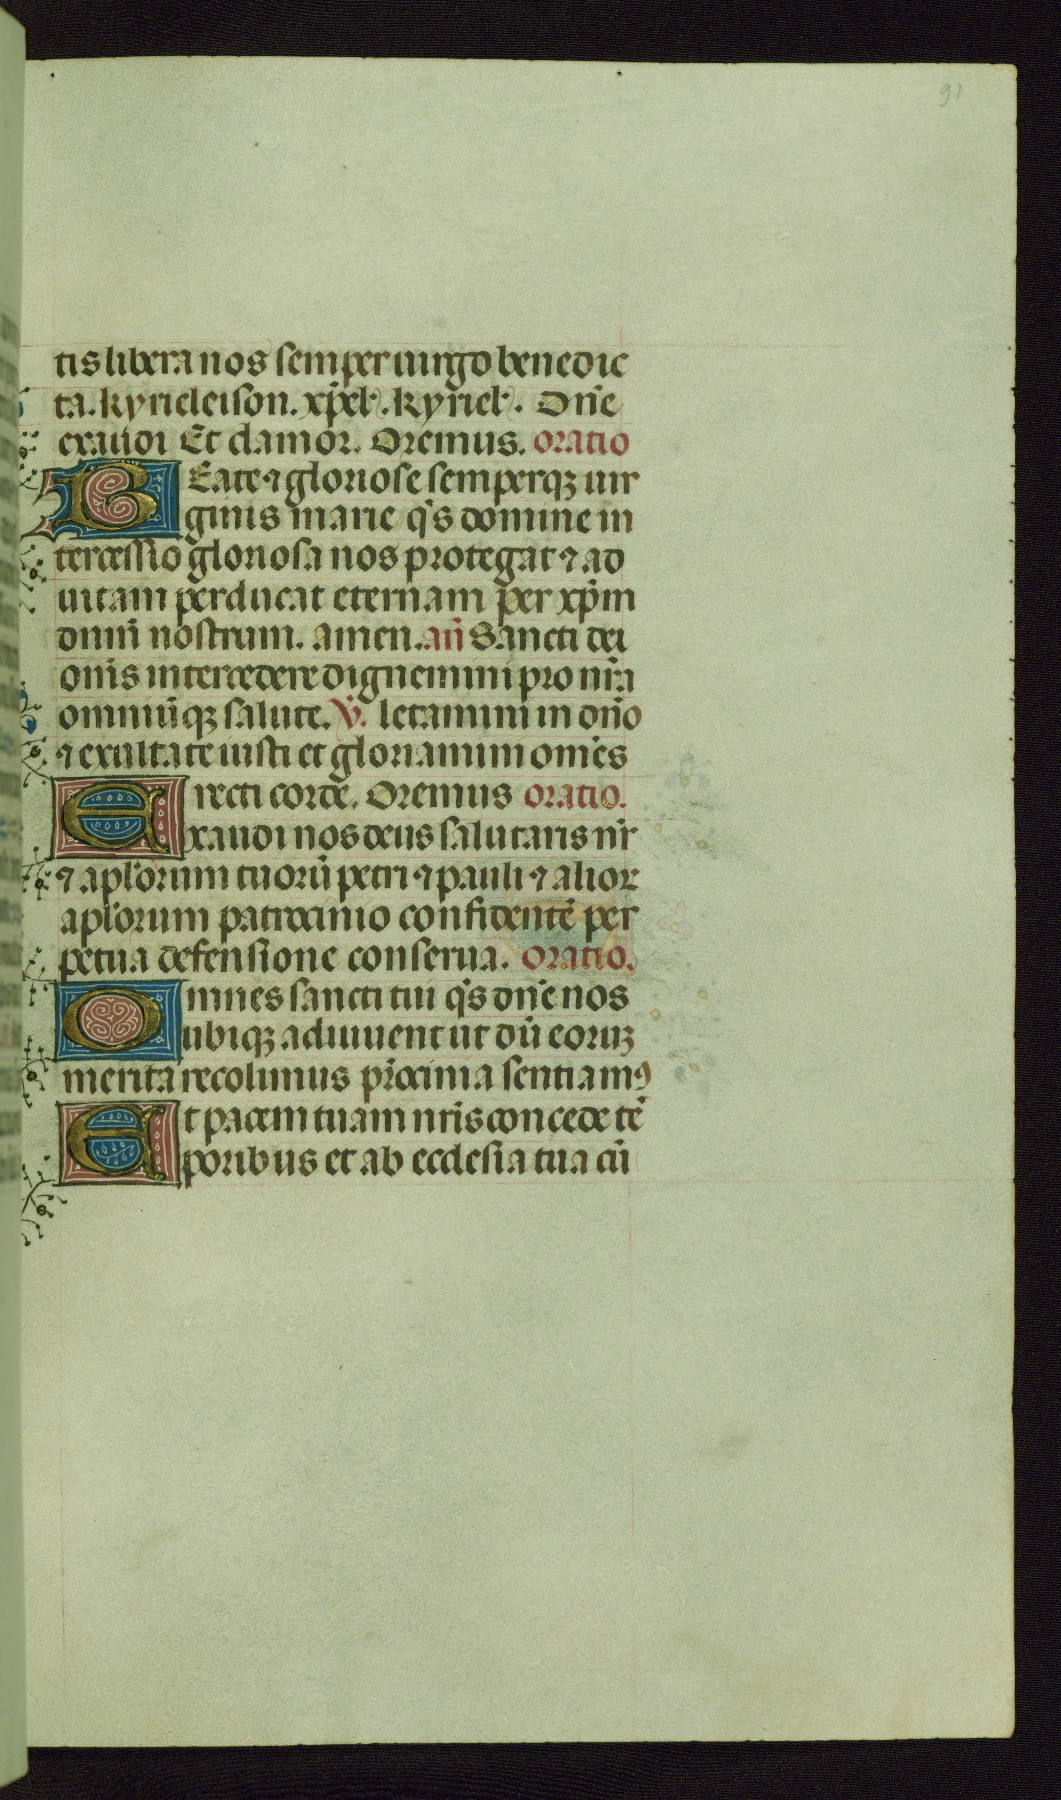 91
tis libera nos semper uirgo benedic
ta. kyrieleison. xp̄el'. kyriel'. Dn̄e
exaudi Et clamor. Oremus. oratio
BEate ⁊ gloriose semperqꝫ uir
ginis marie q̄s domine in
tercessio gloriosa nos protegat ⁊ ad
uitam perducat eternam per xp̄m
dnm̄ nostrum. amen. an̄ Sancti dei
om̄s intercedere dignemini pro nr̄a
omniūqꝫ salute. V̄. letamini in dn̄o
⁊ exultate iusti et gloriamini om̄es
recti corde. Oremus oratio.
Exaudi nos deus salutaris nr̄
⁊ apl'orum tuorū petri ⁊ pauli ⁊ alior
apl'orum patrocinio confidentē per
petua defensione conserua. oratio.
Omnes sancti tui q̄s dn̄e nos
ubiqꝫ adiuuent ut dū eorūꝫ
merita recolimus pr̄oxima sentiamꝰ
Et pacem tuam nr̄is concede tē
poribus et ab ecclesia tua cū